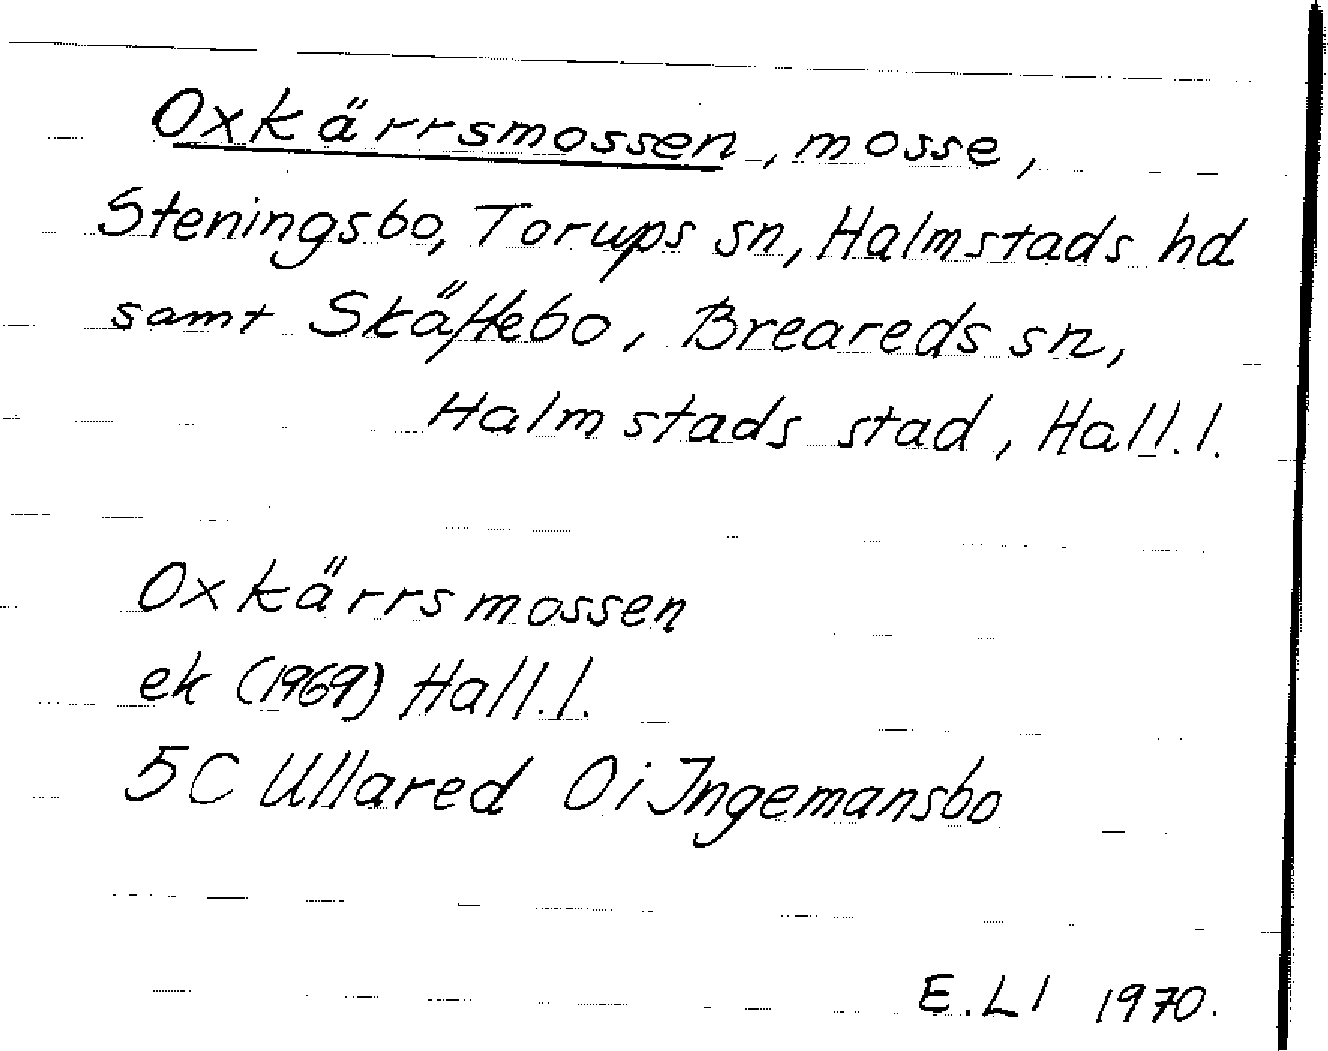 Oxkärrsmossen, mosse,
Steningsbo, Torups sn, Halmstads hd
samt Skäftebo, Breareds sn,
Halmstads stad, Hall.l.
Oxkärrsmossen
ek (1969) Hall.l.
5C Ullared 0i Ingemansbo
E.Ll 1970.